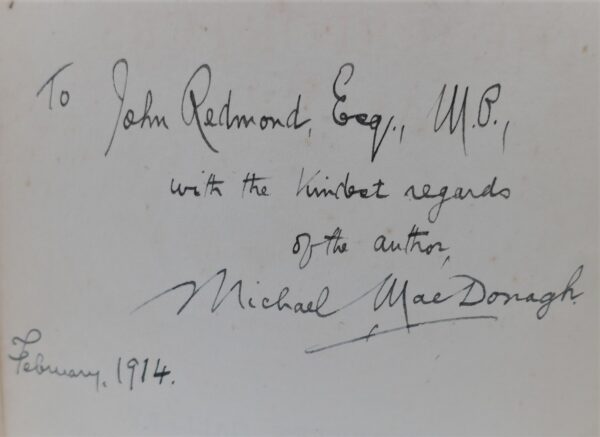 To John Redmond, Esq., M.P.,
with the kindest regards
of the author,
Michael MacDonagh.
February, 1914.